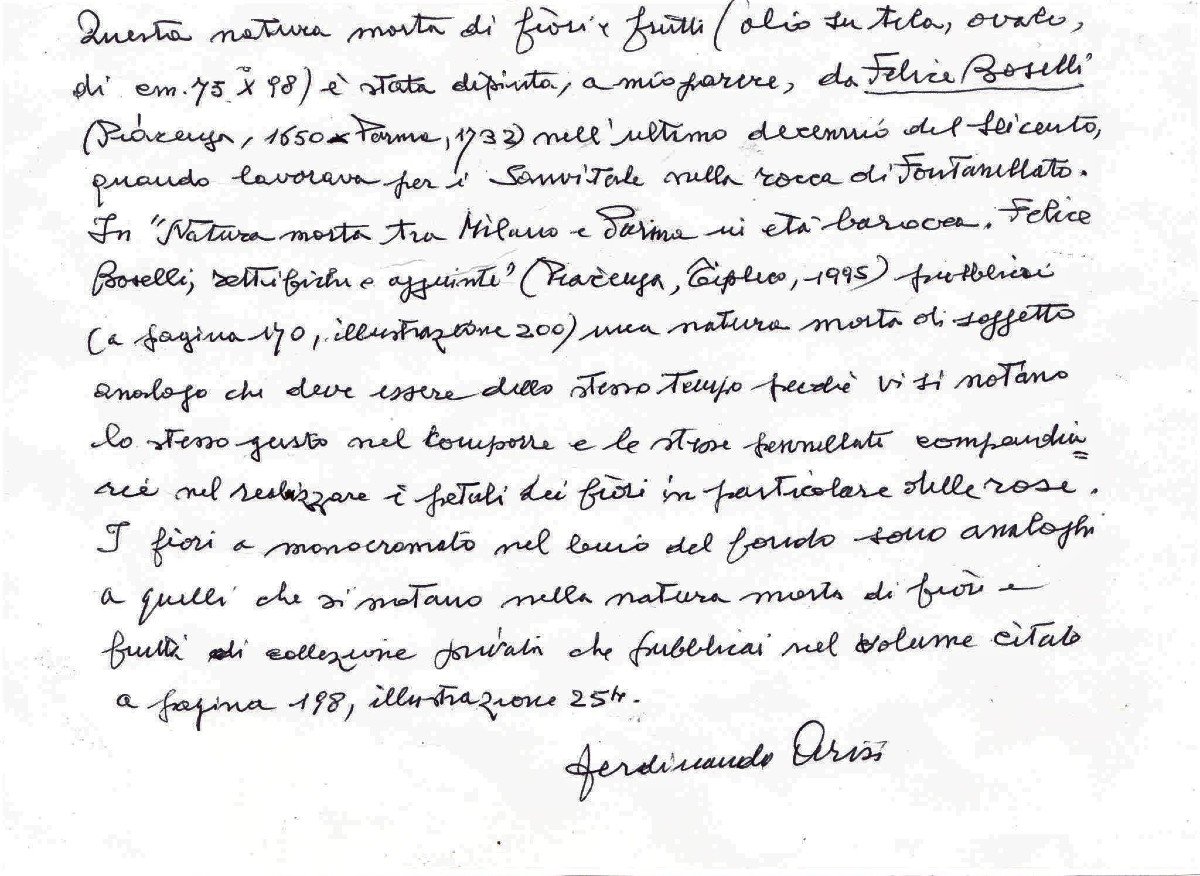 Questa natura morta di fiori e frutti (olio su tela, ovale,
di cm. 75 x 98) è stata dipinta, a mio parere, da Felice Boselli
(Piacenza, 1650 - Parma, 1732) nell'ultimo decennio del Seicento,
quando lavorava per i Sanvitale nella rocca di Fontanellato.
In "Natura morta tra Milano e Parma in età barocca. Felice
Boselli, rettifiche e aggiunte" (Piacenza, Tipleco, 1995) pubblicai
(a pagina 170, illustrazione 200) una natura morta di soggetto
analogo che deve essere dello stesso tempo perchè vi si notano
lo stesso gusto nel comporre e le stesse pennellate compendia=
rie nel realizzare i petali dei fiori in particolare delle rose.
I fiori a monocromato nel buio del fondo sono analoghi
a quelli che si notano nella natura morta di fiori e
frutta di collezione privata che pubblicai nel volume citato
a pagina 198, illustrazione
Ferdinando Arisi